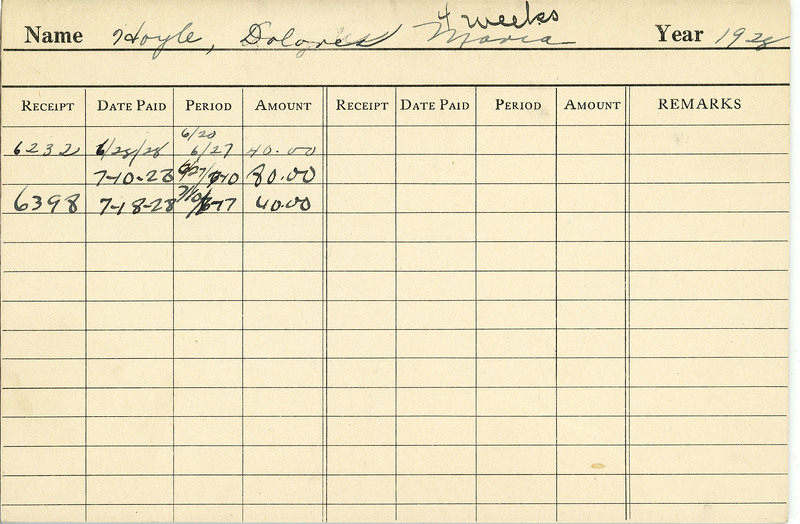 4 weeks
Name Hoyle, Dolores Maria Year 1928
RECEIPT DATE PAID PERIOD AMOUNT RECEIPT DATE PAID PERIOD AMOUNT REMARKS
6/20
6232 6/28/28 6/27 40.00
7-10-28 6/27/7-10 80.00
6398 7-18-28 7/10/ 40.00